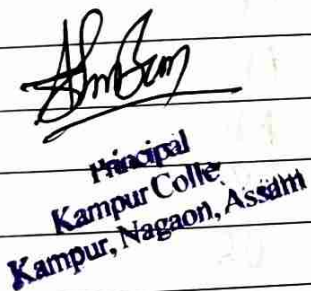 Principal
Kampur Colle
Kampur, Nagaon, Assam